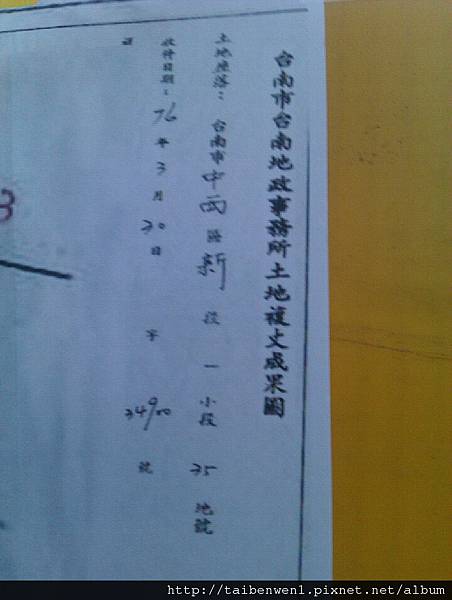 台南市台南地政事務所土地複丈成果圖
土地座落：台南市中西區新段一小段35地號
收件日期：76年3月30日 字34900號
3
http://taibenwen1.pixnet.net/album